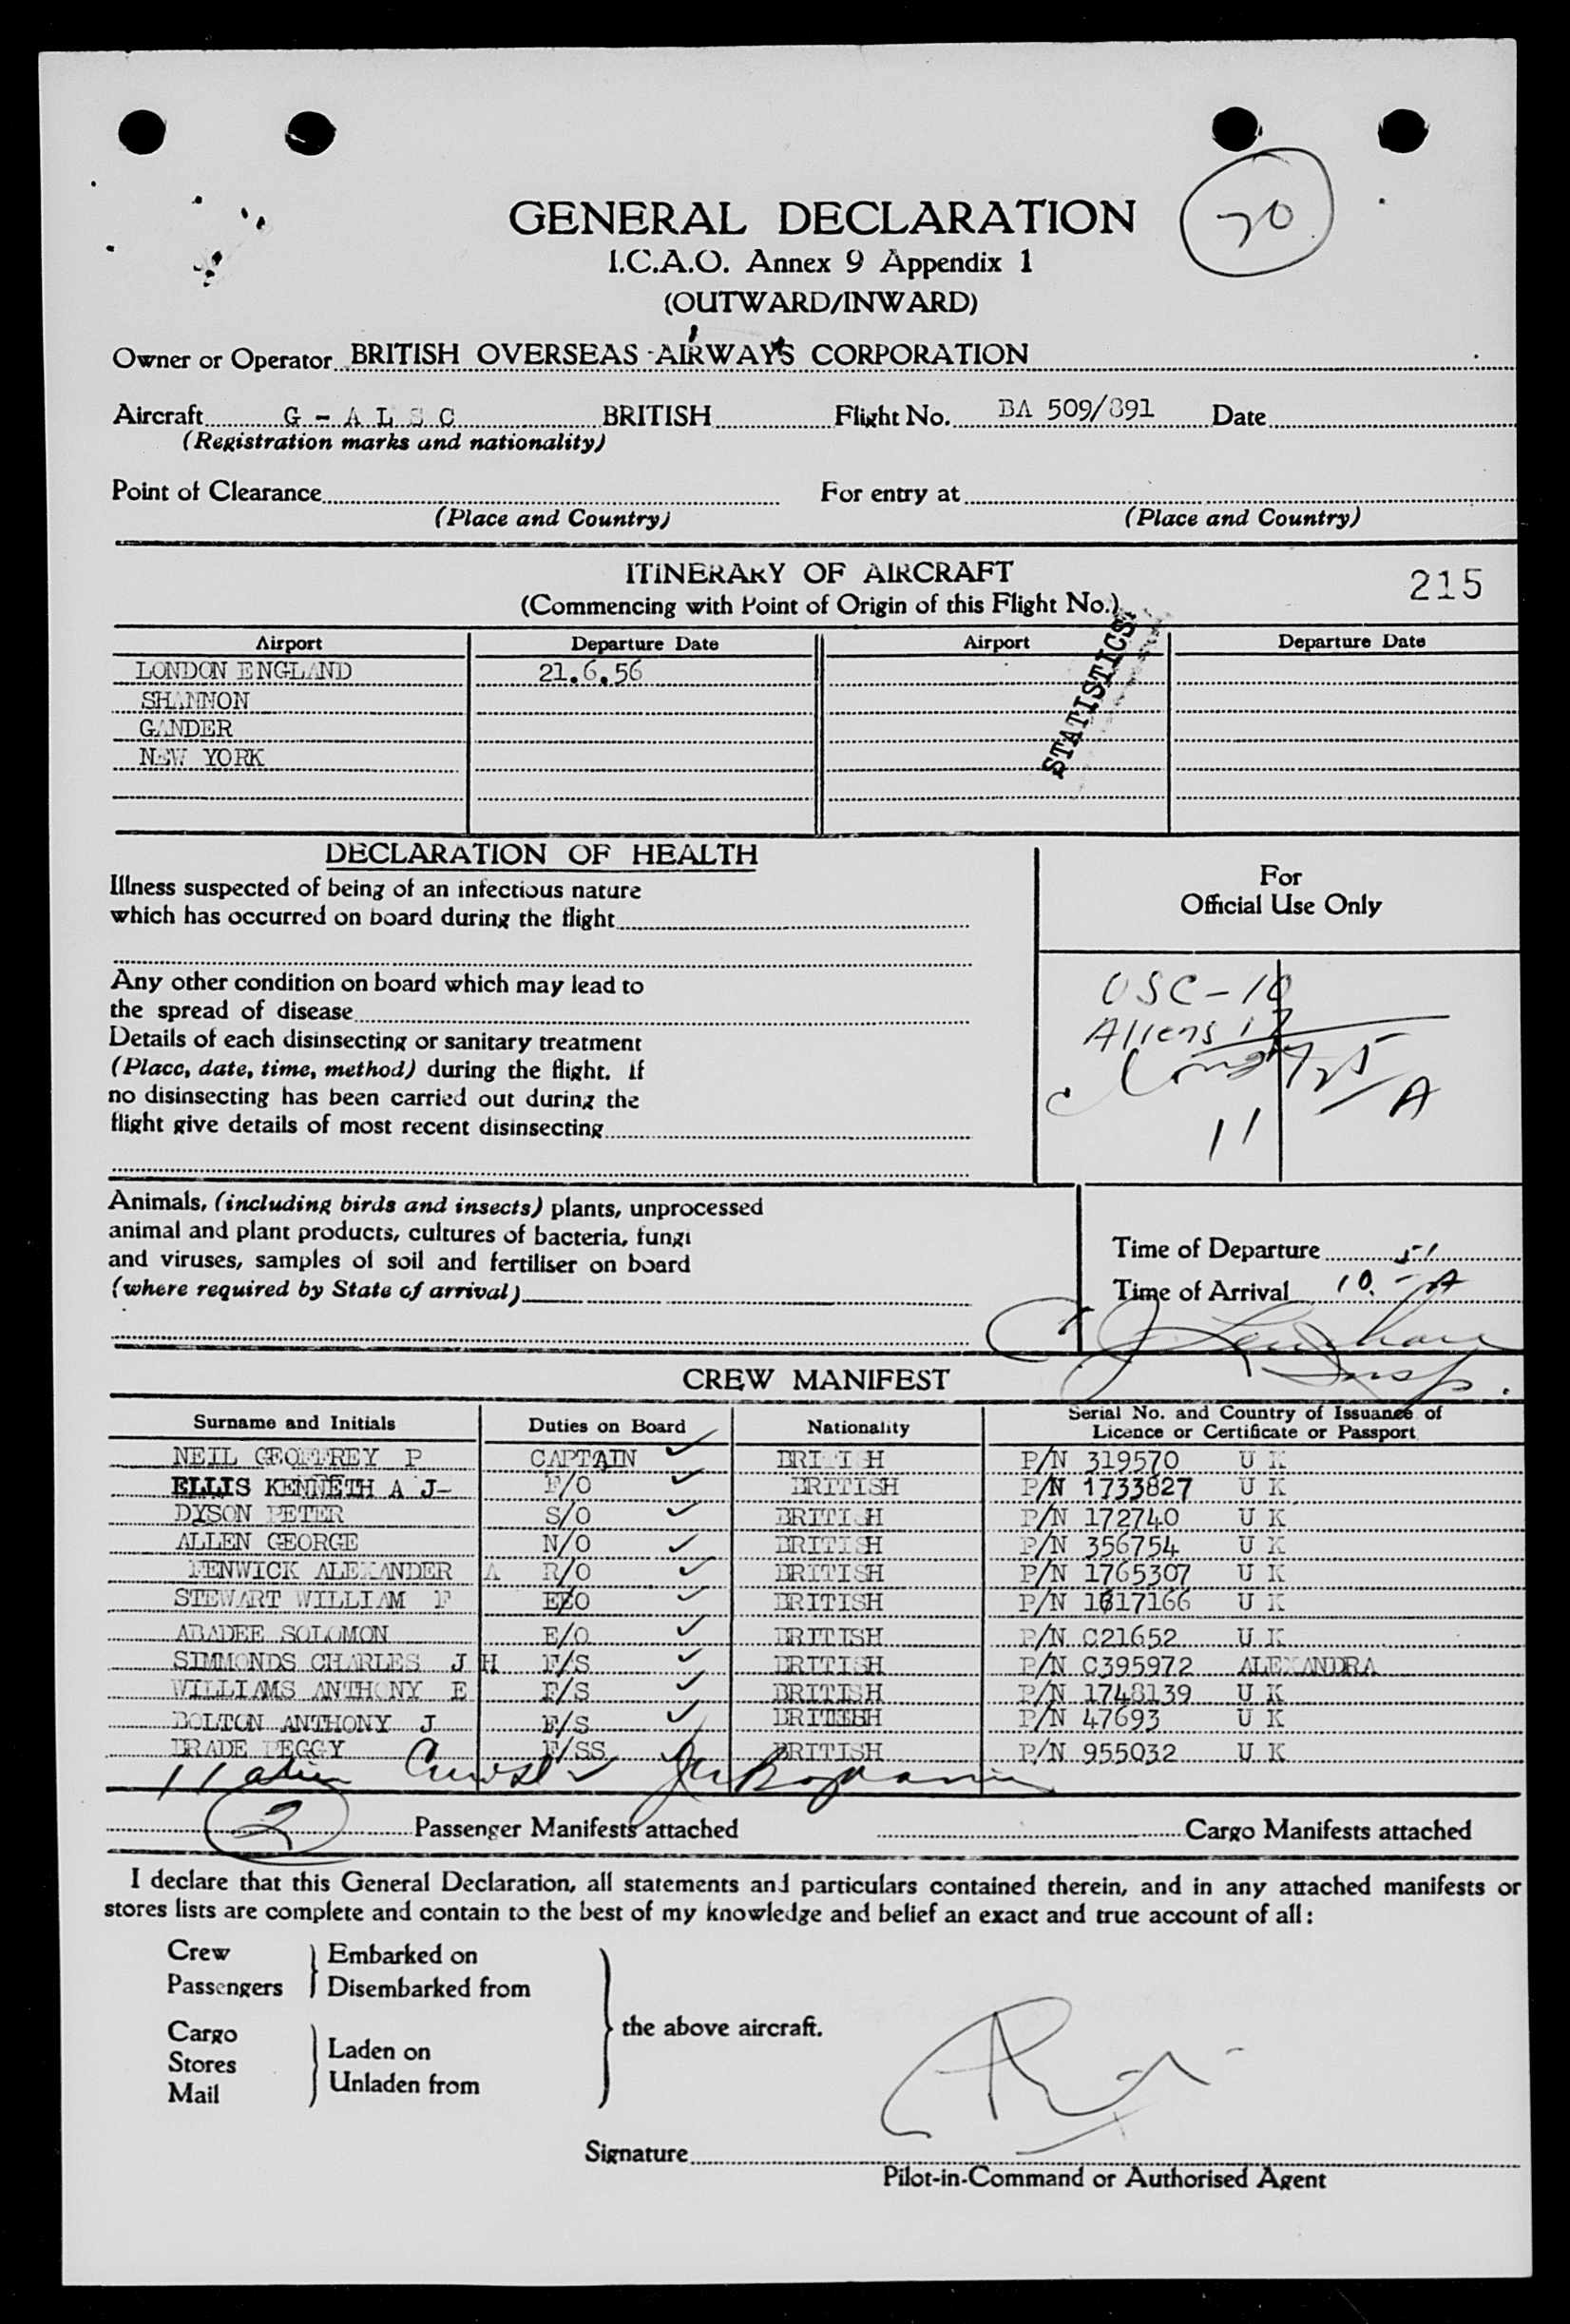 70
GENERAL DECLARATION
I.C.A.O. Annex 9 Appendix 1
(OUTWARD/INWARD)
Owner or Operator BRITISH OVERSEAS AIRWAYS CORPORATION
Aircraft G - A L S C BRITISH Flight No. BA 509/891 Date
(Registration marks and nationality)
Point of Clearance For entry at
(Place and Country) (Place and Country)
ITINERARY OF AIRCRAFT
215
(Commencing with Point of Origin of this Flight No.)
STATISTICS
Airport Departure Date Airport Departure Date
LONDON ENGLAND 21.6.56
SHANNON
GANDER
NEW YORK
DECLARATION OF HEALTH
Illness suspected of being of an infectious nature
which has occurred on board during the flight
Any other condition on board which may lead to
the spread of disease
Details of each disinsecting or sanitary treatment
(Place, date, time, method) during the flight. If
no disinsecting has been carried out during the
flight give details of most recent disinsecting
For
Official Use Only
USC-10
Aliens 17
11 A
Animals, (including birds and insects) plants, unprocessed
animal and plant products, cultures of bacteria, fungi
and viruses, samples of soil and fertiliser on board
(where required by State of arrival)
Time of Departure
Time of Arrival 10 - A
Insp.
CREW MANIFEST
Surname and Initials Duties on Board Nationality Serial No. and Country of Issuance of Licence or Certificate or Passport
NEIL GEOFFREY P CAPTAIN BRITISH P/N 319570 U K
ELLIS KENNETH A J- F/O BRITISH P/N 1733827 U K
DYSON PETER S/O BRITISH P/N 172740 U K
ALLEN GEORGE N/O BRITISH P/N 356754 U K
FENWICK ALEXANDER A R/O BRITISH P/N 1765307 U K
STEWART WILLIAM F E/O BRITISH P/N 1617166 U K
ABADEE SOLOMON E/O BRITISH P/N C21652 U K
SIMMONDS CHARLES J H F/S BRITISH P/N C395972 ALEXANDRA
WILLIAMS ANTHONY E F/S BRITISH P/N 1748139 U K
BOLTON ANTHONY J F/S BRITISH P/N 47693 U K
DRADE PEGGY F/SS BRITISH P/N 955032 U K
11 alien
2 Passenger Manifests attached Cargo Manifests attached
I declare that this General Declaration, all statements and particulars contained therein, and in any attached manifests or
stores lists are complete and contain to the best of my knowledge and belief an exact and true account of all:
Crew Embarked on
Passengers Disembarked from
the above aircraft.
Cargo
Stores Laden on
Mail Unladen from
Signature
Pilot-in-Command or Authorised Agent